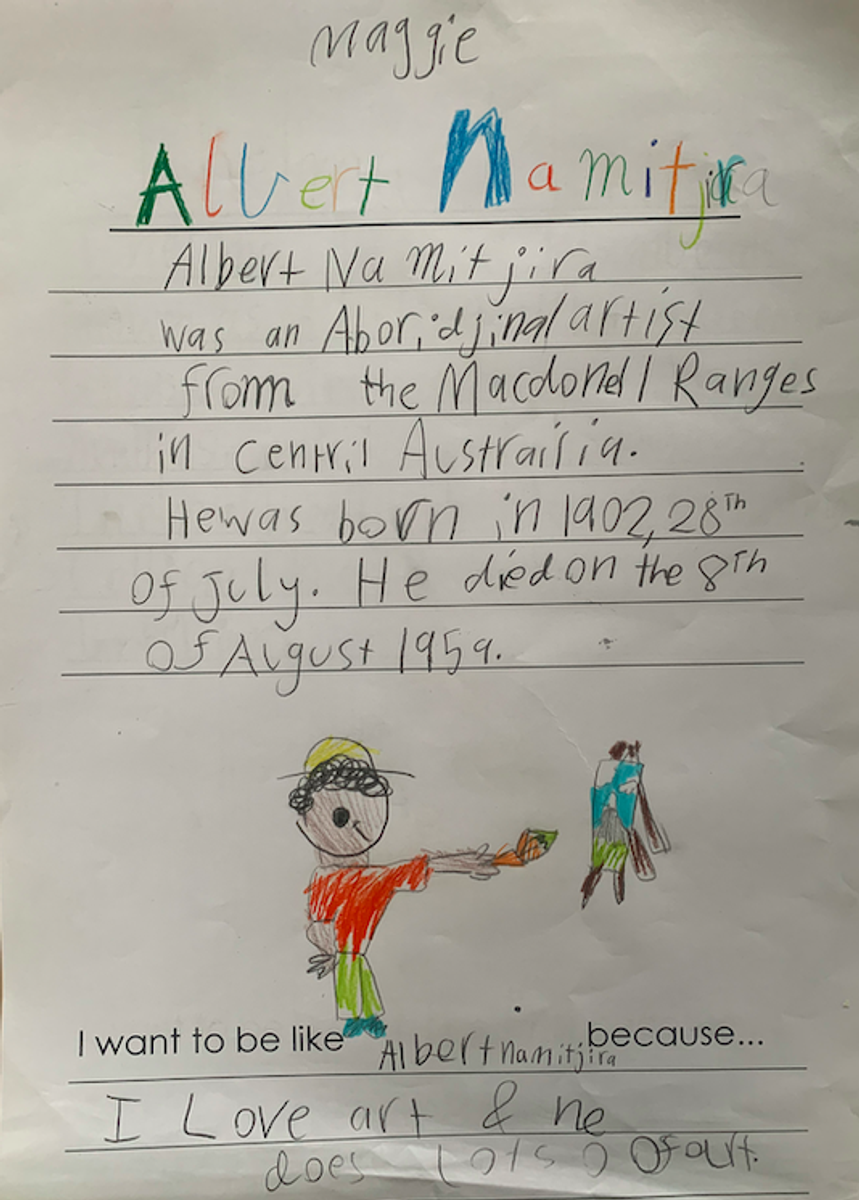 Maggie
Albert Namitjira
Albert Namitjira
was an Aboridjinal artist
from the Macdonell Ranges
in centril Austrailia.
He was born in 1902, 28Th
of July. He died on the 8Th
of Algust 1959.
I want to be like Albert namitjira because...
I Love art & he
does lots of art.